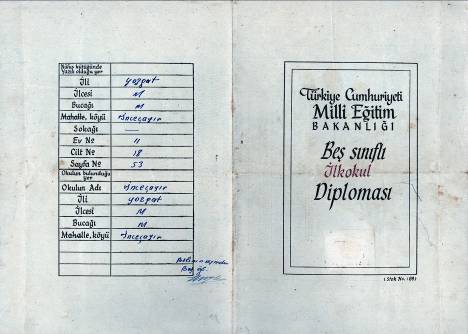 Nüfus kütüğünde
Yazılı olduğu yer
İli Yozgat
İlçesi M
Bucağı M
Mahalle, köyü İnceçayır
Sokağı —
Ev № 11
Cilt № 18
Sayfa № 53
Okulun bulunduğu
yer
Okulun Adı İnceçayır
İli Yozgat
İlçesi M
Bucağı M
Mahalle, köyü İnceçayır
Türkiye Cumhuriyeti
Milli Eğitim
BAKANLIĞI
Beş sınıflı
İlkokul
Diploması